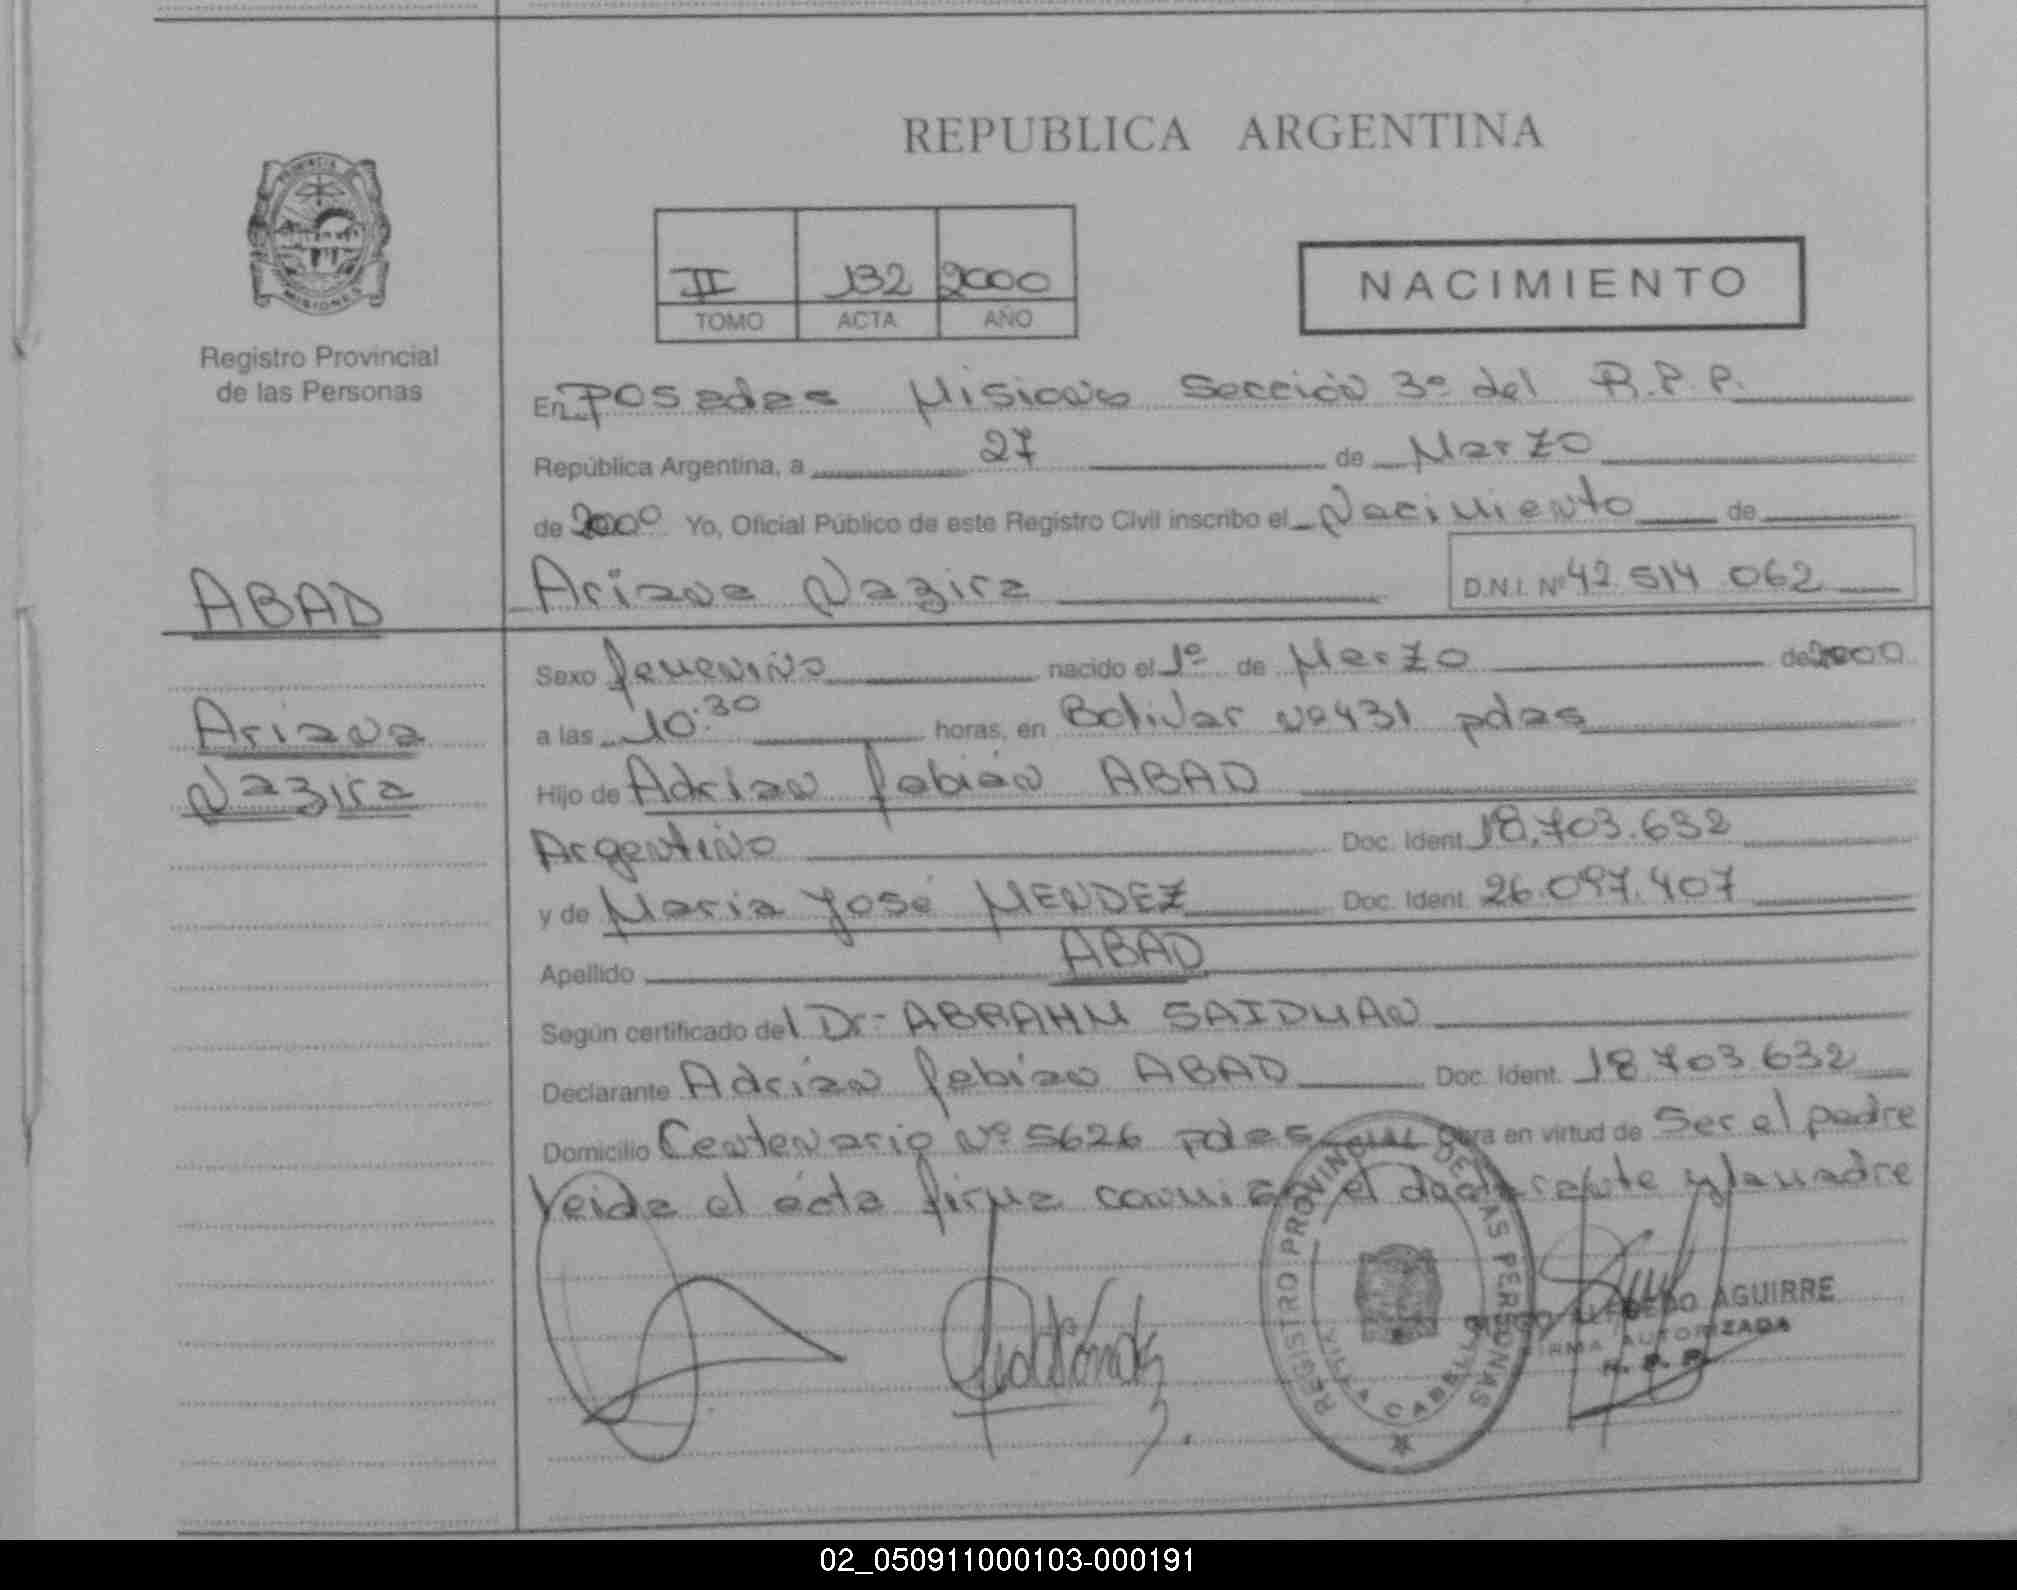 REPUBLICA ARGENTINA
PROVINCIA
MISIONES
Registro Provincial
de las Personas
II 132 2000
TOMO ACTA AÑO
NACIMIENTO
En Posadas Misiones Sección 3º del R.P.P.
República Argentina, a 27 de Marzo
de 2000 Yo, Oficial Público de este Registro Civil inscribo el Nacimiento de
ABAD
Ariana Nazira
D.N.I. Nº 42.514.062
Ariana
Nazira
Sexo femenino nacido el 1º de Marzo de 2000
a las 10:30 horas, en Bolivar nº 431 pdas
Hijo de Adrian fabián ABAD
Argentino Doc. Ident. 18.703.632
y de Maria José MENDEZ Doc. Ident. 26.097.407
Apellido ABAD
Según certificado del Dr- ABRAHM SAIDMAN
Declarante Adrián fabian ABAD Doc. Ident. 18.703.632
Domicilio Centenario Nº 5626 pdas Obra en virtud de Ser el padre
leida el acta firma conmigo el declarante y la madre
REGISTRO PROVINCIAL DE LAS PERSONAS
VILLA CABELLO
ALFREDO AGUIRRE
FIRMA AUTORIZADA
R. P. P.
02_050911000103-000191